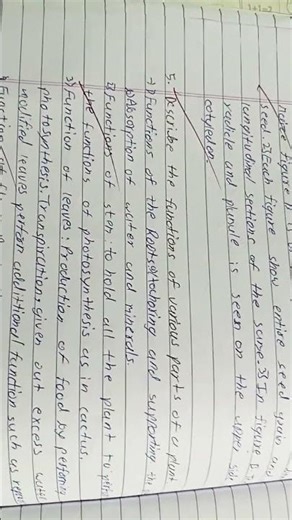 figure
seed. 2) Each figure show entire seed grain and
longitudinal sections of the same. 3) In figure B
radicle and plumule is seen on the upper side
cotyledon.
5. Describe the functions of various parts of a plant
→ 1) Functions of the Roots: Anchoring and supporting the
Absorption of water and minerals.
2) Functions of stem: to hold all the plant to
the functions of photosynthesis as in cactus.
3) Function of leaves: Production of food by
photosynthesis. Transpiration, given out excess
modified leaves perform additional function such as